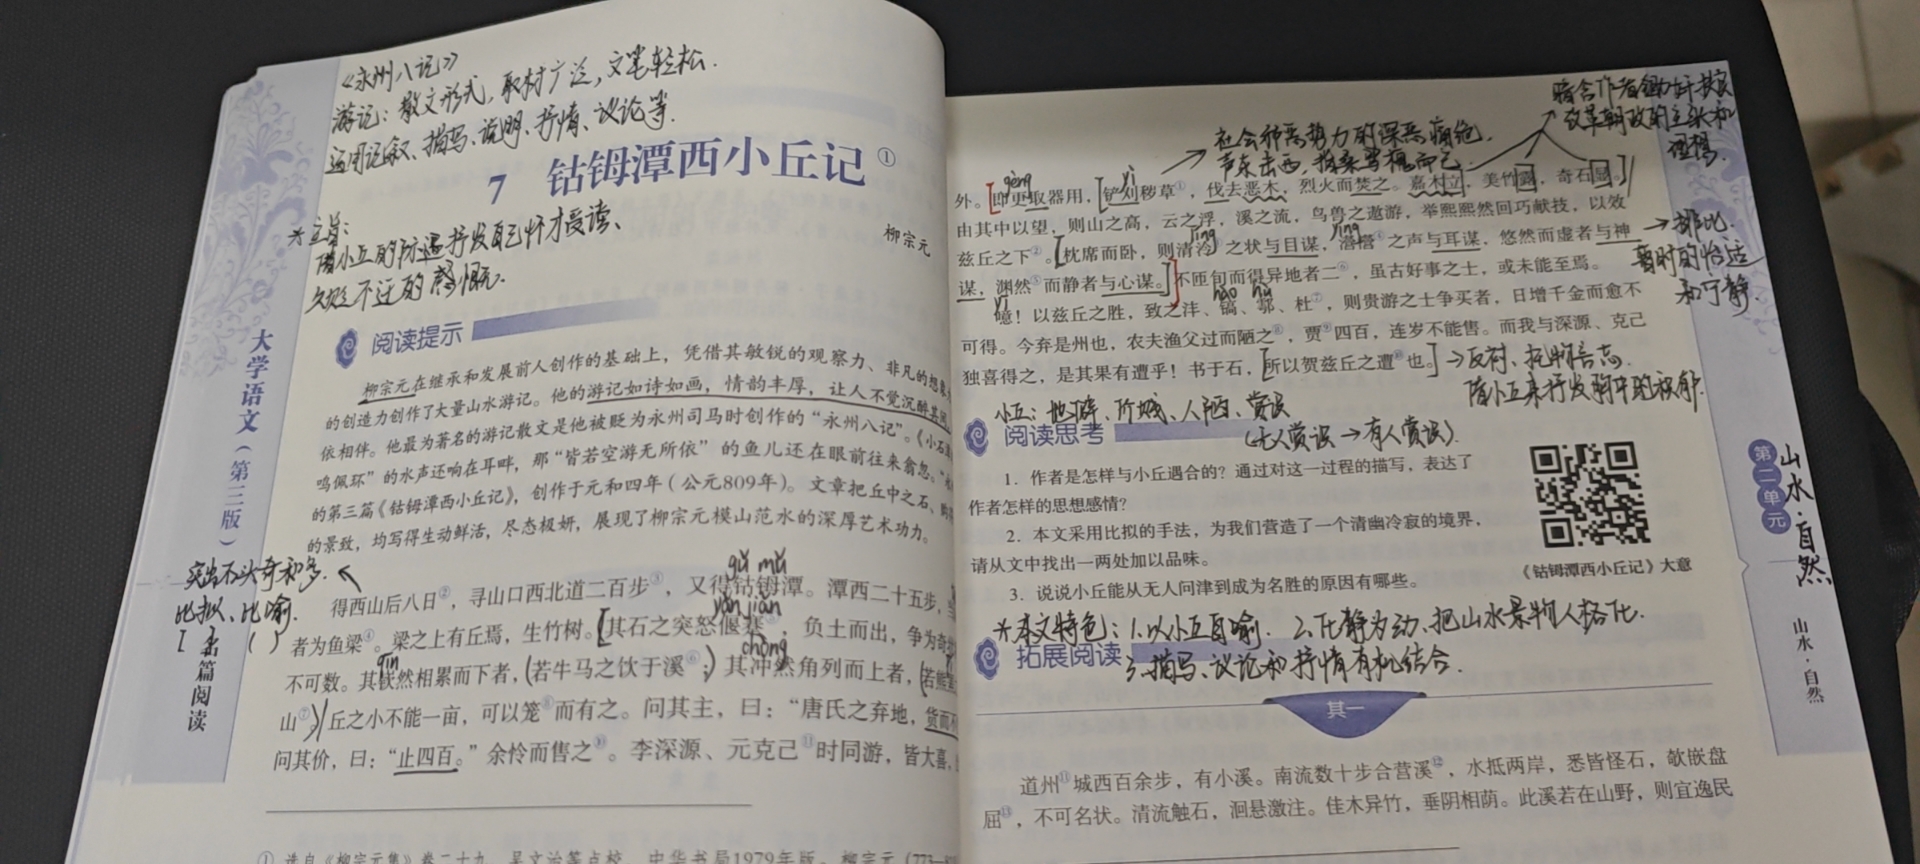 《永州八记》
游记：散文形式，取材广泛，文笔轻松.
运用记叙、描写、说明、抒情、议论等.
7 钴鉧潭西小丘记①
柳宗元
*主旨：
借小丘的际遇抒发自己怀才受谗、
久贬不迁的感慨.
阅读提示
柳宗元在继承和发展前人创作的基础上，凭借其敏锐的观察力、非凡的想
的创造力创作了大量山水游记。他的游记如诗如画，情韵丰厚，让人不觉沉醉其
依相伴。他最为著名的游记散文是他被贬为永州司马时创作的“永州八记”。《小石
鸣佩环”的水声还响在耳畔，那“皆若空游无所依”的鱼儿还在眼前往来翕忽。
的第三篇《钴鉧潭西小丘记》，创作于元和四年（公元809年）。文章把丘中之石、
的景致，均写得生动鲜活，尽态极妍，展现了柳宗元模山范水的深厚艺术功力。
突出石头奇和多.
比拟、比喻.
[ ] ( )
gǔ mǔ
得西山后八日②，寻山口西北道二百步③，又得钴鉧潭。潭西二十五步，
yǎn jiǎn
者为鱼梁④。梁之上有丘焉，生竹树。[其石之突怒偃蹇，负土而出，争为奇
qīn chòng
不可数。其嵚然相累而下者，(若牛马之饮于溪⑥；)其冲然角列而上者，(若熊
山⑦)]丘之小不能一亩，可以笼⑧而有之。问其主，曰：“唐氏之弃地，货而
问其价，曰：“止四百。”余怜而售之⑩。李深源、元克己⑪时同游，皆大喜，
① 选自《柳宗元集》卷二十九，吴文治等点校，中华书局1979年版。柳宗元（773—
大学语文（第三版）
名篇阅读
暗含作者锄奸扶良
改革朝政的主张和
理想.
社会邪恶势力的深恶痛绝.
声东击西，指桑骂槐而已.
gēng yì
外。[即更取器用，[铲刈秽草①，伐去恶木，烈火而焚之。嘉木立，美竹露，奇石显。]
由其中以望，则山之高，云之浮，溪之流，鸟兽之遨游，举熙熙然回巧献技，以效
líng yíng
兹丘之下②。[枕席而卧，则清泠之状与目谋，瀯瀯之声与耳谋，悠然而虚者与神
谋，渊然⑤而静者与心谋。]不匝旬而得异地者二⑥，虽古好事之士，或未能至焉。
→排比.
暂时的怡适
和宁静.
yī hào hù
噫！以兹丘之胜，致之沣、镐、鄠、杜⑦，则贵游之士争买者，日增千金而愈不
可得。今弃是州也，农夫渔父过而陋之⑧，贾⑨四百，连岁不能售。而我与深源、克己
独喜得之，是其果有遭乎！书于石，[所以贺兹丘之遭⑩也。]→反衬、托物言志.
借小丘来抒发胸中的积郁.
小丘：地僻、价贱、人陋、赏识
(无人赏识→有人赏识).
阅读思考
1. 作者是怎样与小丘遇合的？通过对这一过程的描写，表达了
作者怎样的思想感情？
2. 本文采用比拟的手法，为我们营造了一个清幽冷寂的境界，
请从文中找出一两处加以品味。
3. 说说小丘能从无人问津到成为名胜的原因有哪些。
《钴鉧潭西小丘记》大意
*本文特色：1.以小丘自喻. 2.化静为动、把山水景物人格化.
3.描写、议论和抒情有机结合.
拓展阅读
其一
道州⑪城西百余步，有小溪。南流数十步合营溪⑫，水抵两岸，悉皆怪石，欹嵌盘
屈⑬，不可名状。清流触石，洄悬激注。佳木异竹，垂阴相荫。此溪若在山野，则宜逸民
第二单元
山水·自然
山水·自然